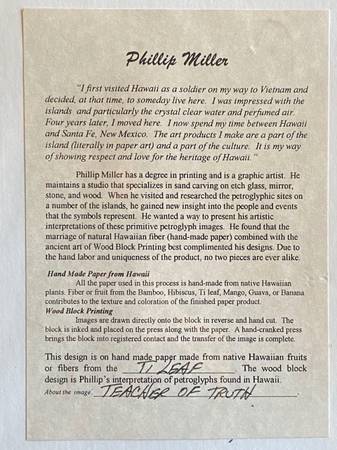 Phillip Miller
"I first visited Hawaii as a soldier on my way to Vietnam and
decided, at that time, to someday live here. I was impressed with the
islands and particularly the crystal clear water and perfumed air.
Four years later, I moved here. I now spend my time between Hawaii
and Santa Fe, New Mexico. The art products I make are a part of the
island (literally in paper art) and a part of the culture. It is my way
of showing respect and love for the heritage of Hawaii."
Phillip Miller has a degree in printing and is a graphic artist. He
maintains a studio that specializes in sand carving on etch glass, mirror,
stone, and wood. When he visited and researched the petroglyphic sites on
a number of the islands, he gained new insight into the people and events
that the symbols represent. He wanted a way to present his artistic
interpretations of these primitive petroglyph images. He found that the
marriage of natural Hawaiian fiber (hand-made paper) combined with the
ancient art of Wood Block Printing best complimented his designs. Due to
the hand labor and uniqueness of the product, no two pieces are ever alike.
Hand Made Paper from Hawaii
All the paper used in this process is hand-made from native Hawaiian
plants. Fiber or fruit from the Bamboo, Hibiscus, Ti leaf, Mango, Guava, or Banana
contributes to the texture and coloration of the finished paper product.
Wood Block Printing
Images are drawn directly onto the block in reverse and hand cut. The
block is inked and placed on the press along with the paper. A hand-cranked press
brings the block into registered contact and the transfer of the image is complete.
This design is on hand made paper made from native Hawaiian fruits
or fibers from the TI LEAF. The wood block
design is Phillip's interpretation of petroglyphs found in Hawaii.
About the image TEACHER OF TRUTH.